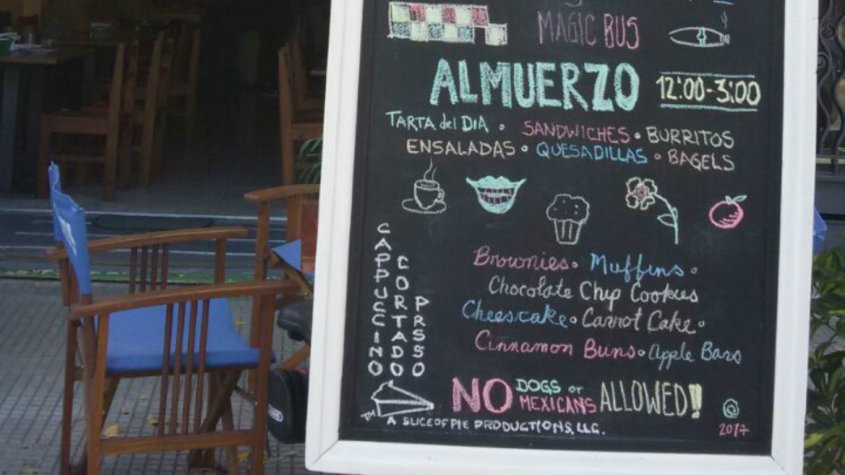 MAGIC BUS
ALMUERZO 12:00-3:00
TARTA del DIA • SANDWICHES • BURRITOS
ENSALADAS • QUESADILLAS • BAGELS
CAPPUCCINO
CORTADO
PRSSO
Brownies • Muffins •
Chocolate Chip Cookies
Cheesecake • Carrot Cake •
Cinnamon Buns • Apple Bars
NO DOGS or MEXICANS ALLOWED!
TM
A SLICE OF PIE PRODUCTIONS, LLC.
2017